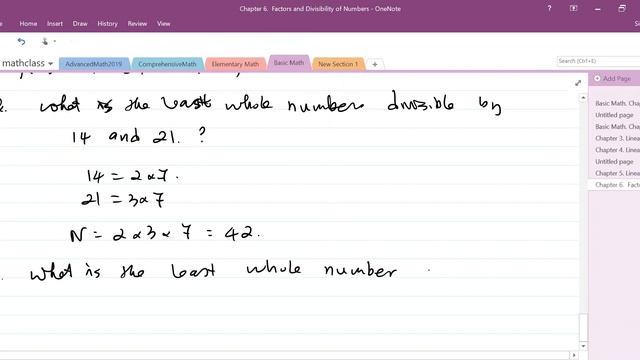 Chapter 6. Factors and Divisibility of Numbers - OneNote
File Home Insert Draw History Review View
mathclass
AdvancedMath2019 ComprehensiveMath Elementary Math Basic Math New Section 1 +
Search (Ctrl+E)
Add Page
what is the least whole numbers divisible by
14 and 21. ?
14 = 2 x 7.
21 = 3 x 7
N = 2 x 3 x 7 = 42.
what is the least whole number
Basic Math. Cha
Untitled page
Basic Math. Chap
Chapter 3. Linea
Chapter 4. Linea
Untitled page
Chapter 5. Linea
Chapter 6. Facto